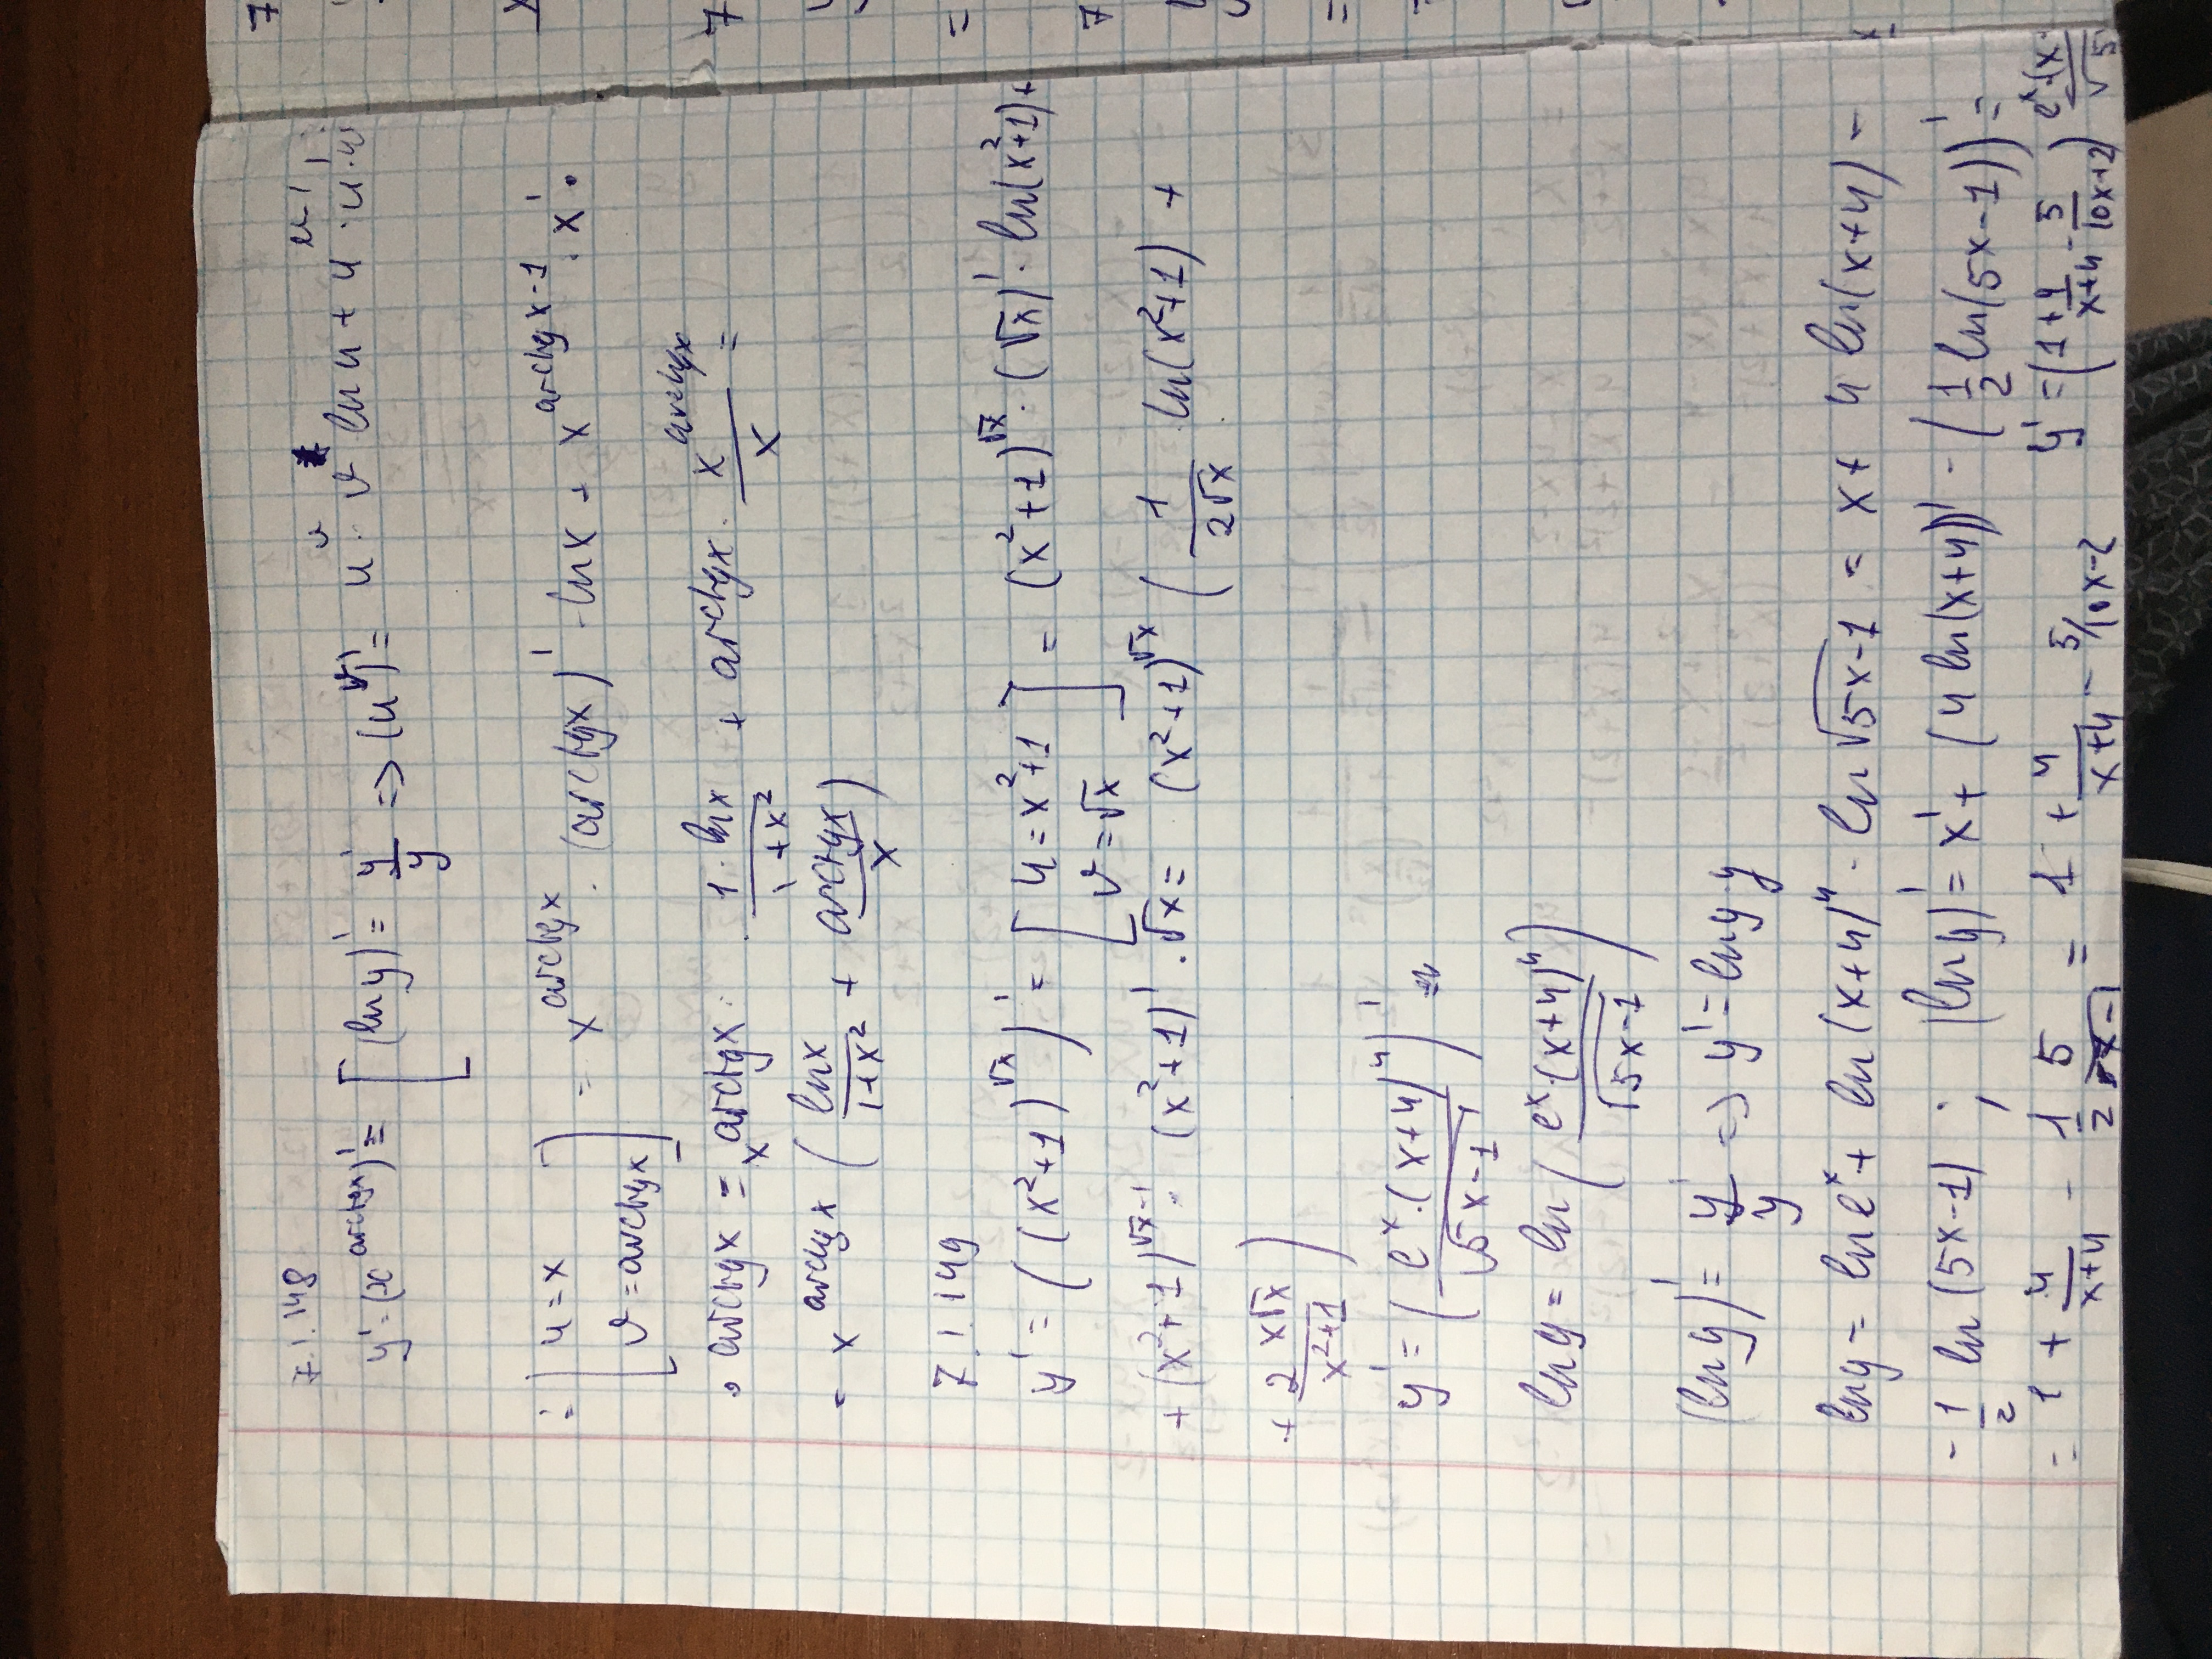 7.1.148
y' = (x^arctgx)' = [ (ln y)' = y'/y => (u^v)' = u^v · v' ln u + u^v-1 · u' · v
= [ u = x v = arctgx ] = x^arctgx · (arctgx)' · lnx + x^arctgx-1 · x' ·
· arctgx = x^arctgx · 1·lnx/1+x² + arctgx · x^arctgx/x =
= x^arctgx ( lnx/1+x² + arctgx/x )
7.1.149
y' = ((x²+1)^√x)' = [ u = x²+1 v = √x ] = (x²+1)^√x · (√x)' · ln(x²+1) +
+ (x²+1)^√x-1 · (x²+1)' · √x = (x²+1)^√x ( 1/2√x · ln(x²+1) +
+ 2x√x/x²+1 )
y' = ( e^x·(x+4)^4/√5x-1 )' =
ln y = ln ( e^x·(x+4)^4/√5x-1 )
(ln y)' = y'/y => y' = ln y · y
ln y = ln e^x + ln (x+4)^4 - ln √5x-1 = x + 4 ln(x+4) -
- 1/2 ln (5x-1) ; (ln y)' = x' + (4 ln(x+4))' - (1/2 ln(5x-1))' =
= 1 + 4/x+4 - 1/2 5/5x-1 = 1 + 4/x+4 - 5/10x-2 y' = (1 + 4/x+4 - 5/10x+2) e^x·(x/√5